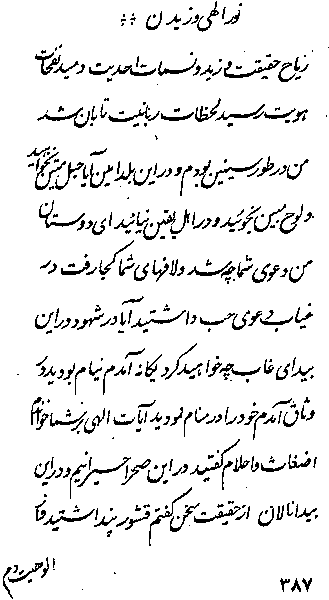 نور الهی وزیدن **
ریاح حقیقت وزید و نسمات احدیت دمید نفحات
هویت رسید لحظات ربانیت تابان شد
من در طور سینین بودم و در این بلد امین آیا حبل متین نخواهید
و لوح مبین نجوئید و در اهل یقین نیائید ای دوستان
من دعوی شما چه شد و لافهای شما کجا رفت در
غیاب دعوی حب داشتید آیا در شهود در این
بیدای غاب چه خواهید کرد یگانه آمدم نیام بودید در
وثاق آمدم خود را در منام نمودید آیات الهی بر شما خواندم
اضغاث و احلام گفتید در این صحرا حسیرانیم و در این
بیدا نالان از حقیقت سخن گفتم قشور پنداشتید فنا
الوهیت دم
۳۸۷